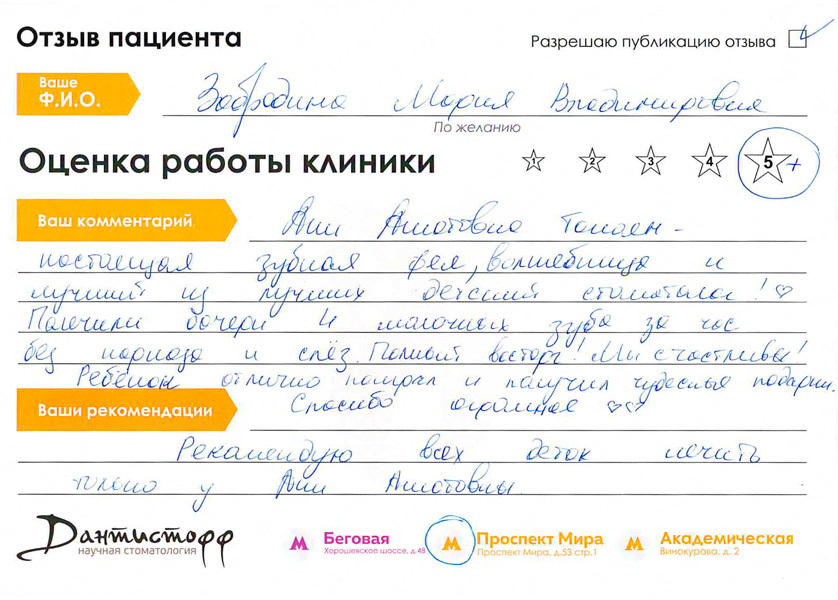 Отзыв пациента
Разрешаю публикацию отзыва
Ваше
Ф.И.О.
Забродина Мария Владимировна
По желанию
Оценка работы клиники
1 2 3 4 5 +
Ваш комментарий
Ани Ашотовна -
настоящая зубная фея, волшебница и
лучший из лучших детский стоматолог! ♡
Полечили дочери 4 молочных зуба за час
без наркоза и слёз. Полный восторг! Мы счастливы!
Ребёнок отлично поиграл и получил чудесные подарки.
Спасибо огромное ♡♡
Ваши рекомендации
Рекомендую всех деток лечить
только у Ани Ашотовны.
Дантистофф
научная стоматология
М Беговая
Хорошевское шоссе, д.48
М Проспект Мира
Проспект Мира, д.53 стр.1
М Академическая
Винокурова, д. 2